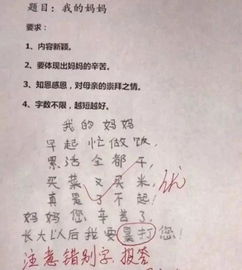 题目：我的妈妈
要求：
1、内容新颖。
2、要体现出妈妈的辛苦。
3、知恩感恩，对母亲的崇拜之情。
4、字数不限，越短越好。
我的妈妈
早起忙做饭，
累活全都干，
买菜又买米，
真是了不起，
妈妈您辛苦了，
长大以后我要暴打您！
优
注意错别字，报答